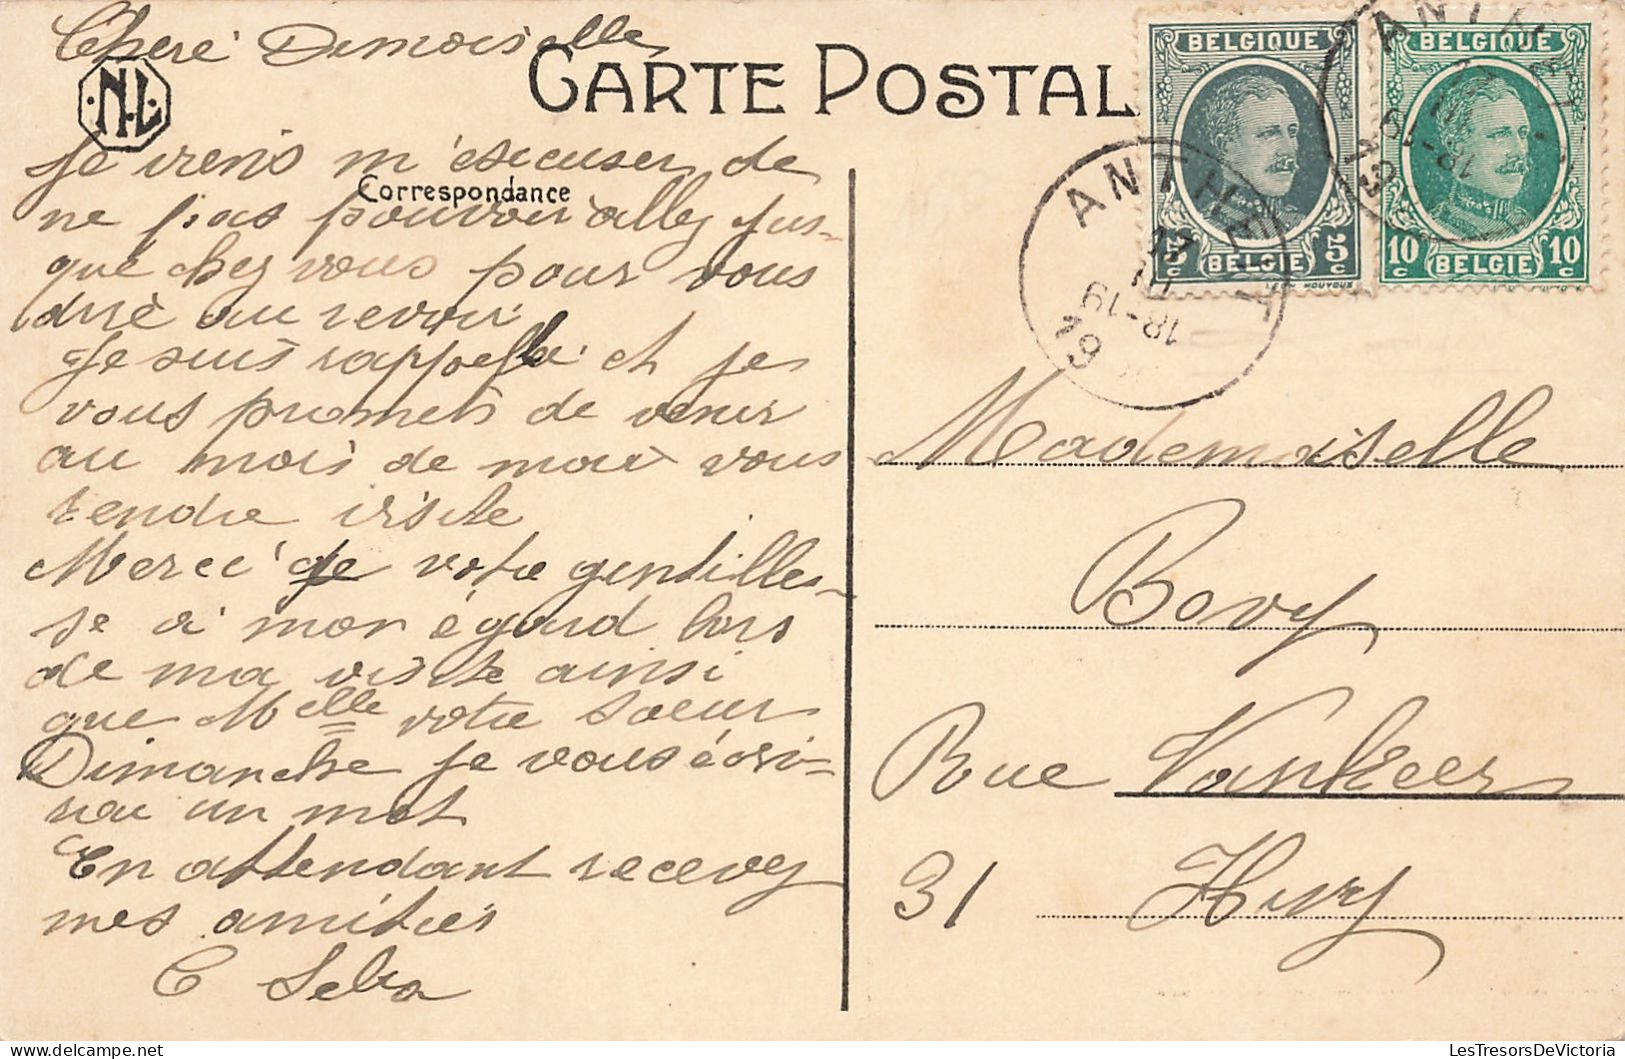 Cheré Demoiselle
CARTE POSTAL
N.L.
Je viens m'escuser de
Correspondance
ne pas pouvoir allez jus-
que chez vous pour vous
dire au revoir
Je suis rappellé et je
vous promets de venir
au mois de mai vous
rendre visite
Merci de votre gentilles-
se à mon égard lors
de ma visite ainsi
que Melle votre soeur
Dimanche je vous écri-
rai un mot
En attendant recevez
mes amitiés
C Seba
BELGIQUE
5c 5c
BELGIE
HOUYOUX
BELGIQUE
10c 10c
BELGIE
ANTHEIT
17
18-19
19
ANTHEIT
18-19
19
Mademoiselle
Bovy
Rue Vankeer
31 Huy
LesTresorsDeVictoria